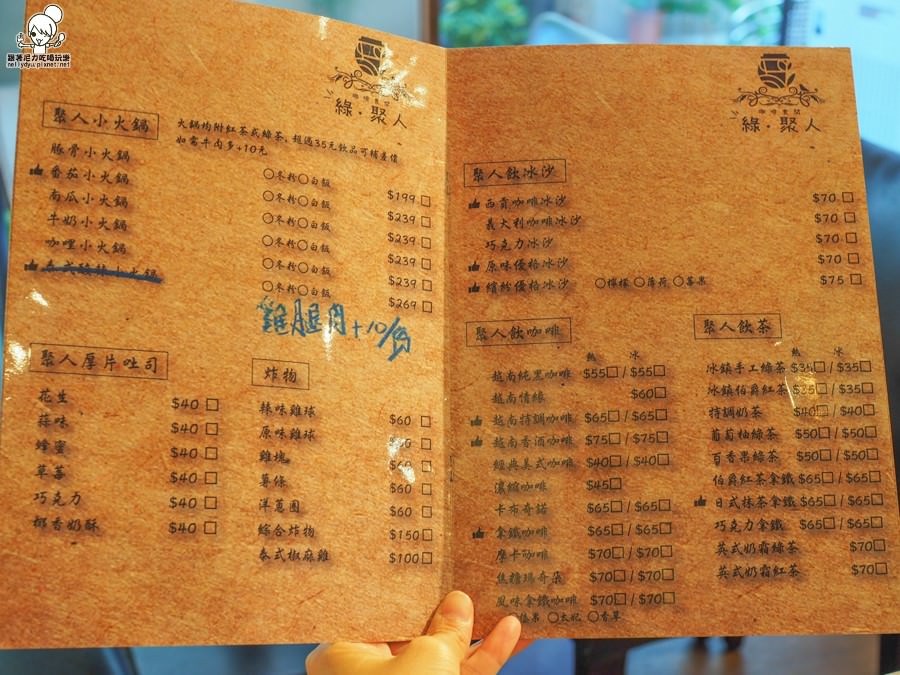 跟著尼力吃喝玩樂
nellydyu.pixnet.net
綠·聚人
聚人小火鍋
火鍋均附紅茶或綠茶,超過35元飲品可補差價
如需牛肉多+10元
豚骨小火鍋 ○冬粉○白飯 $199 □
番茄小火鍋 ○冬粉○白飯 $239 □
南瓜小火鍋 ○冬粉○白飯 $239 □
牛奶小火鍋 ○冬粉○白飯 $239 □
咖哩小火鍋 ○冬粉○白飯 $239 □
泰式酸辣小火鍋 ○冬粉○白飯 $269 □
雞腿肉+10/份
聚人厚片吐司
花生 $40 □
蒜味 $40 □
蜂蜜 $40 □
草莓 $40 □
巧克力 $40 □
椰香奶酥 $40 □
炸物
辣味雞球 $60 □
原味雞球 $60 □
雞塊 $60 □
薯條 $60 □
洋蔥圈 $60 □
綜合炸物 $150 □
泰式椒麻雞 $100 □
咖啡食間
綠·聚人
聚人飲冰沙
西貢咖啡冰沙 $70 □
義大利咖啡冰沙 $70 □
巧克力冰沙 $70 □
原味優格冰沙 $70 □
繽紛優格冰沙 ○檸檬 ○薄荷 ○蘋果 $75 □
聚人飲咖啡
熱 冰
越南純黑咖啡 $55□/$55□
越南情緣 $60□
越南特調咖啡 $65□/$65□
越南香酒咖啡 $75□/$75□
經典美式咖啡 $40□/$40□
濃縮咖啡 $45□
卡布奇諾 $65□/$65□
拿鐵咖啡 $65□/$65□
摩卡咖啡 $70□/$70□
焦糖瑪奇朵 $70□/$70□
風味拿鐵咖啡 $70□/$70□
榛果 ○太妃 ○香草
聚人飲茶
熱 冰
冰鎮手工綠茶 $35□/$35□
冰鎮伯爵紅茶 $35□/$35□
特調奶茶 $40□/$40□
葡萄柚綠茶 $50□/$50□
百香果綠茶 $50□/$50□
伯爵紅茶拿鐵 $65□/$65□
日式抹茶拿鐵 $65□/$65□
巧克力拿鐵 $65□/$65□
英式奶霜綠茶 $70□
英式奶霜紅茶 $70□